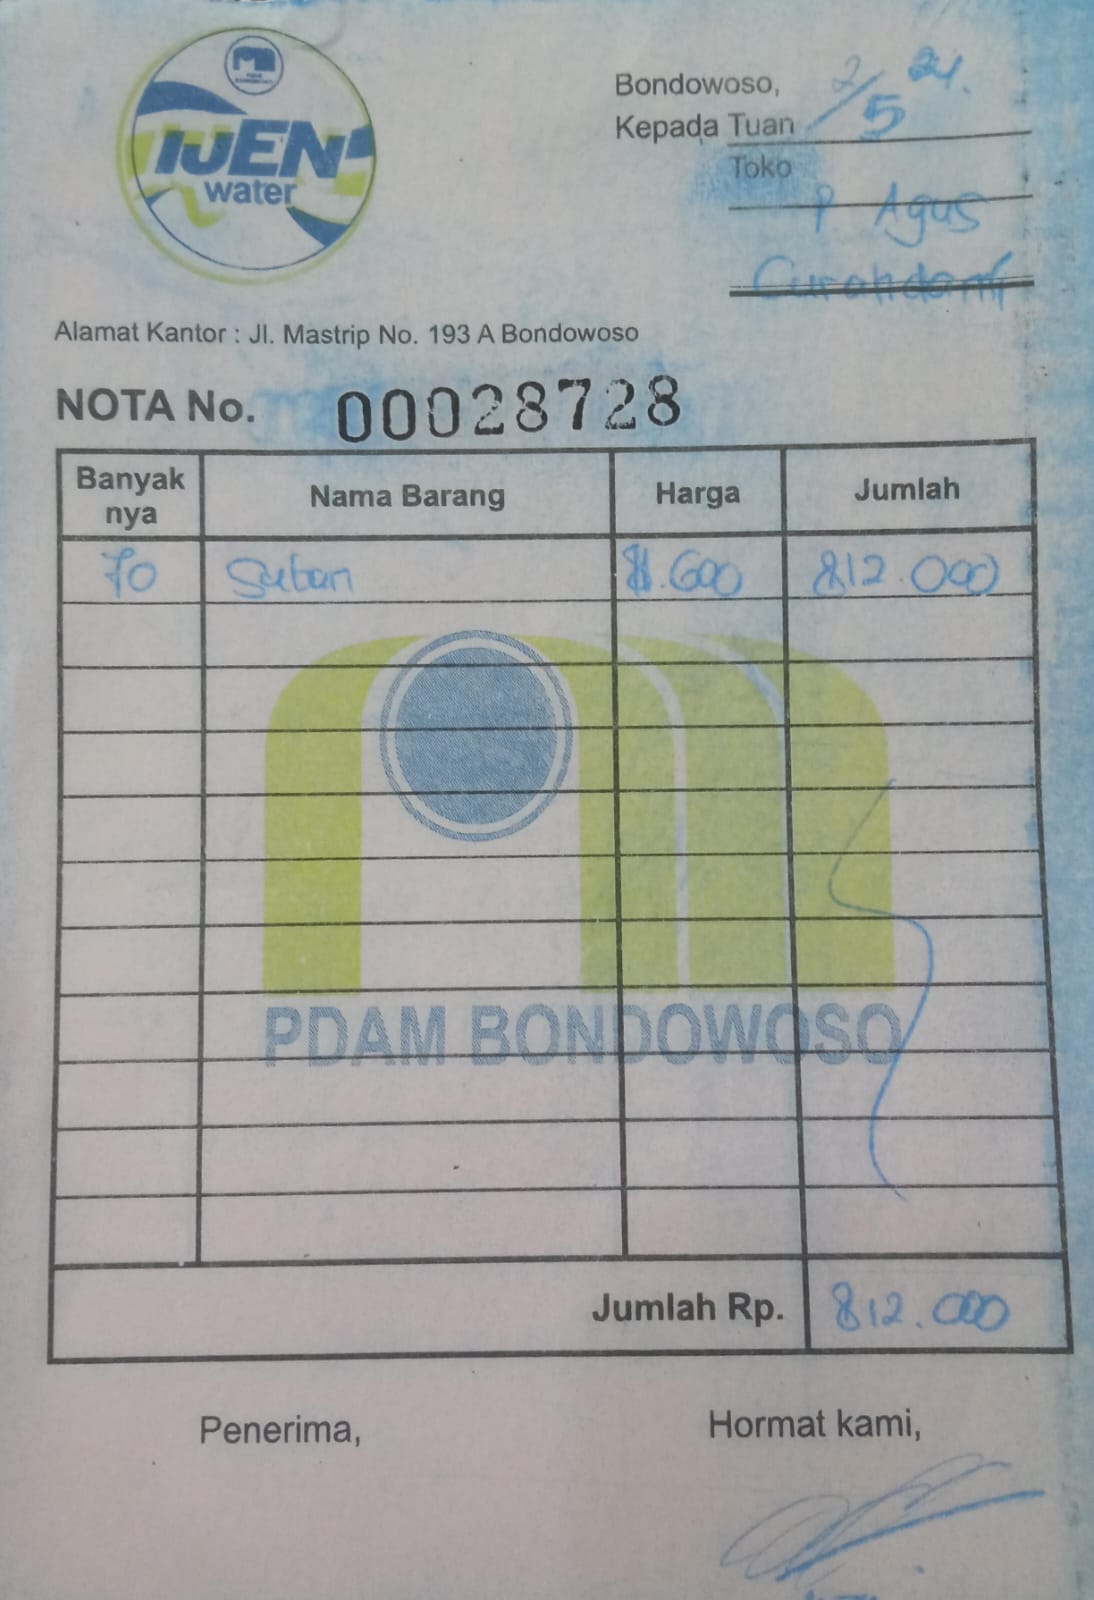 IJEN
water
Bondowoso, 2/5 24.
Kepada Tuan
Toko
P Agus
Curahdami
Alamat Kantor : Jl. Mastrip No. 193 A Bondowoso
NOTA No. 00028728
Banyak nya Nama Barang Harga Jumlah
70 .600 812.000
PDAM BONDOWOSO
Jumlah Rp. 812.000
Penerima, Hormat kami,